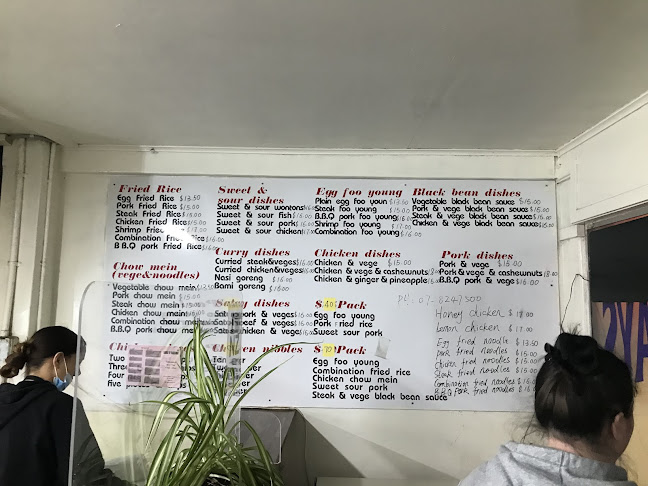 Fried Rice
Egg Fried Rice $13.50
Pork Fried Rice $15.00
Steak Fried Rice $15.00
Chicken Fried Rice $15.00
Shrimp Fried
Combination Fried Rice $16.00
B.B.Q pork Fried Rice
Chow mein
(vege&noodles)
Vegetable chow mein
Pork chow mein $15.00
Steak chow mein
Chicken chow mein
Combination chow mein
B.B.Q pork chow mein
Two
Three
Four
Five pieces
Sweet &
sour dishes
Sweet & sour wontons
Sweet & sour fish $15.00
Sweet & sour pork
Sweet & sour chicken
Curry dishes
Curried steak&veges
Curried chicken&veges
Nasi goreng $16.00
Bami goreng $16.00
dishes
pork & veges
beef & veges
chicken & veges
Chicken nibbles
Egg foo young
Plain egg foo young
Steak foo young $15.00
B.B.Q pork foo young
Shrimp foo young
Combination foo young $16.00
Chicken dishes
Chicken & vege $15.00
Chicken & vege & cashewnuts
Chicken & ginger & pineapple
$40 Pack
Egg foo young
Pork fried rice
Sweet sour pork
Pack
Egg foo young
Combination fried rice
Chicken chow mein
Sweet sour pork
Steak & vege black bean sauce
Black bean dishes
Vegetable black bean sauce $15.00
Pork & vege black bean sauce $15.00
Steak & vege black bean sauce $15.00
Chicken & vege black bean sauce $15.00
Pork dishes
Pork & vege $15.00
Pork & vege & cashewnuts
Pork & ginger & pineapple $16.00
PH: 07-8247500
Honey chicken $18.00
Lemon chicken $17.00
Egg fried noodle $13.50
Pork fried noodles $15.00
Chicken fried noodles $15.00
Steak fried noodles $15.00
Combination fried noodles $16.00
B.B.Q pork fried noodles $16.00